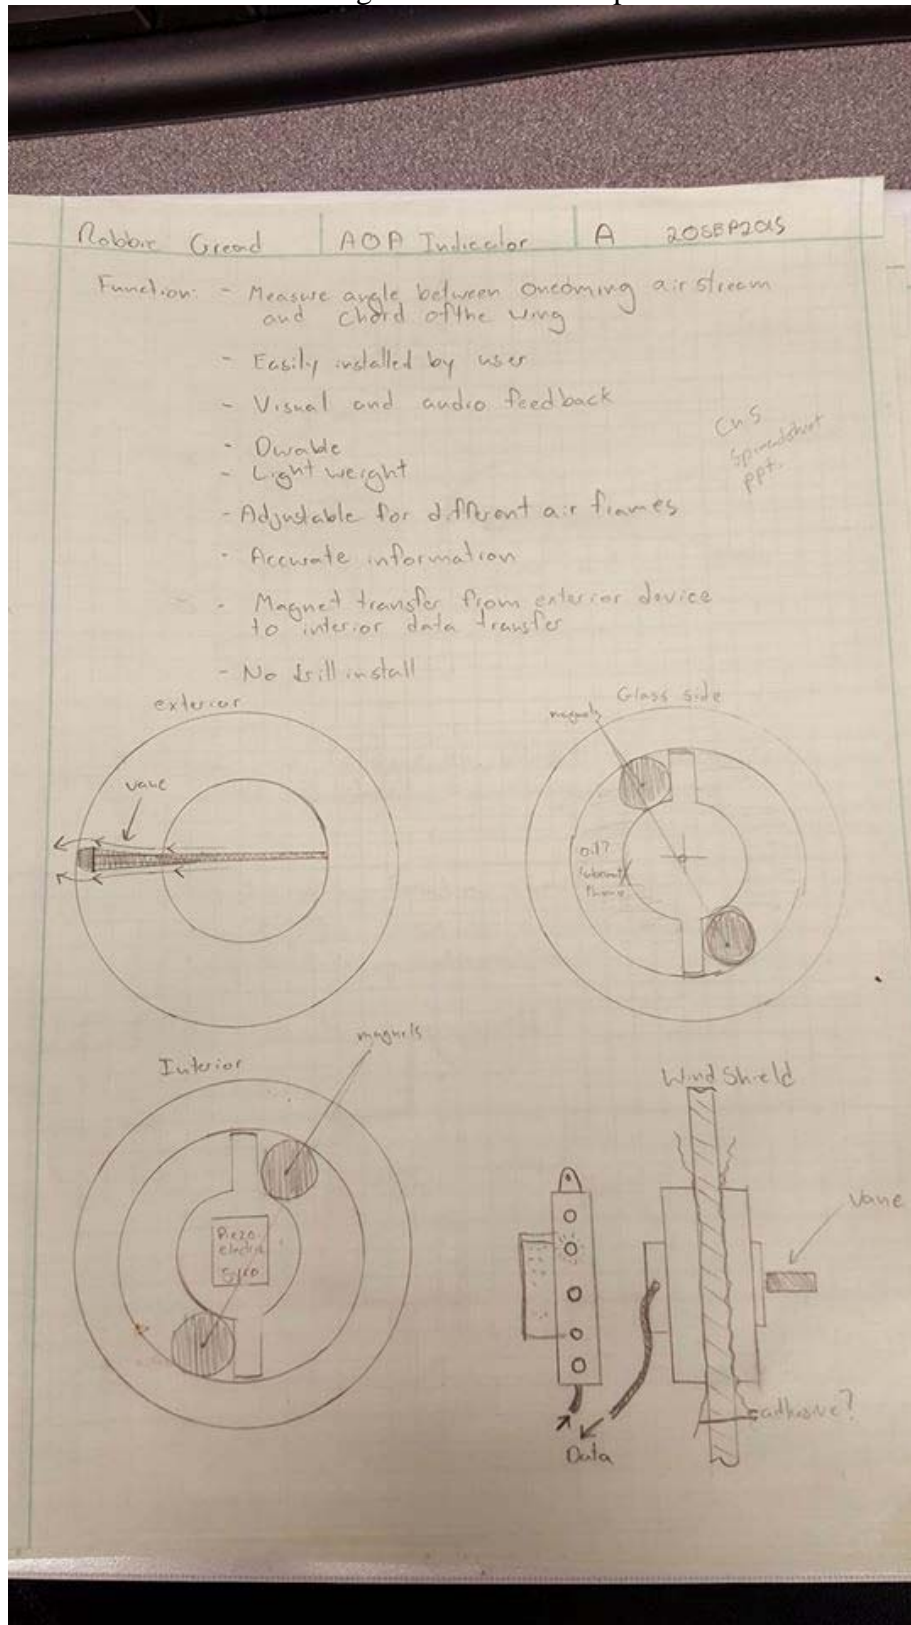 Robbie AOA Indicator A 20SEP2015
Function: - Measure angle between oncoming air stream
and chord of the wing
- Easily installed by user
- Visual and audio feedback
- Durable
- Light weight
- Adjustable for different air frames
- Accurate information
- Magnet transfer from exterior device
to interior data transfer
- No drill install
Spreadsheet
ppt.
exterior
vane
Glass side
magnets
oil?
Interior
magnets
Piezo
electric
Gyro
Wind Shield
vane
adhesive?
Data